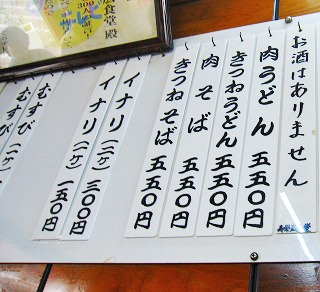 お酒はありません
肉うどん 五五〇円
きつねうどん 五五〇円
肉そば 五五〇円
きつねそば 五五〇円
イナリ(二ケ) 三〇〇円
イナリ(一ケ) 一五〇円
むすび(二ケ)
むすび
食堂殿
300人
サービス